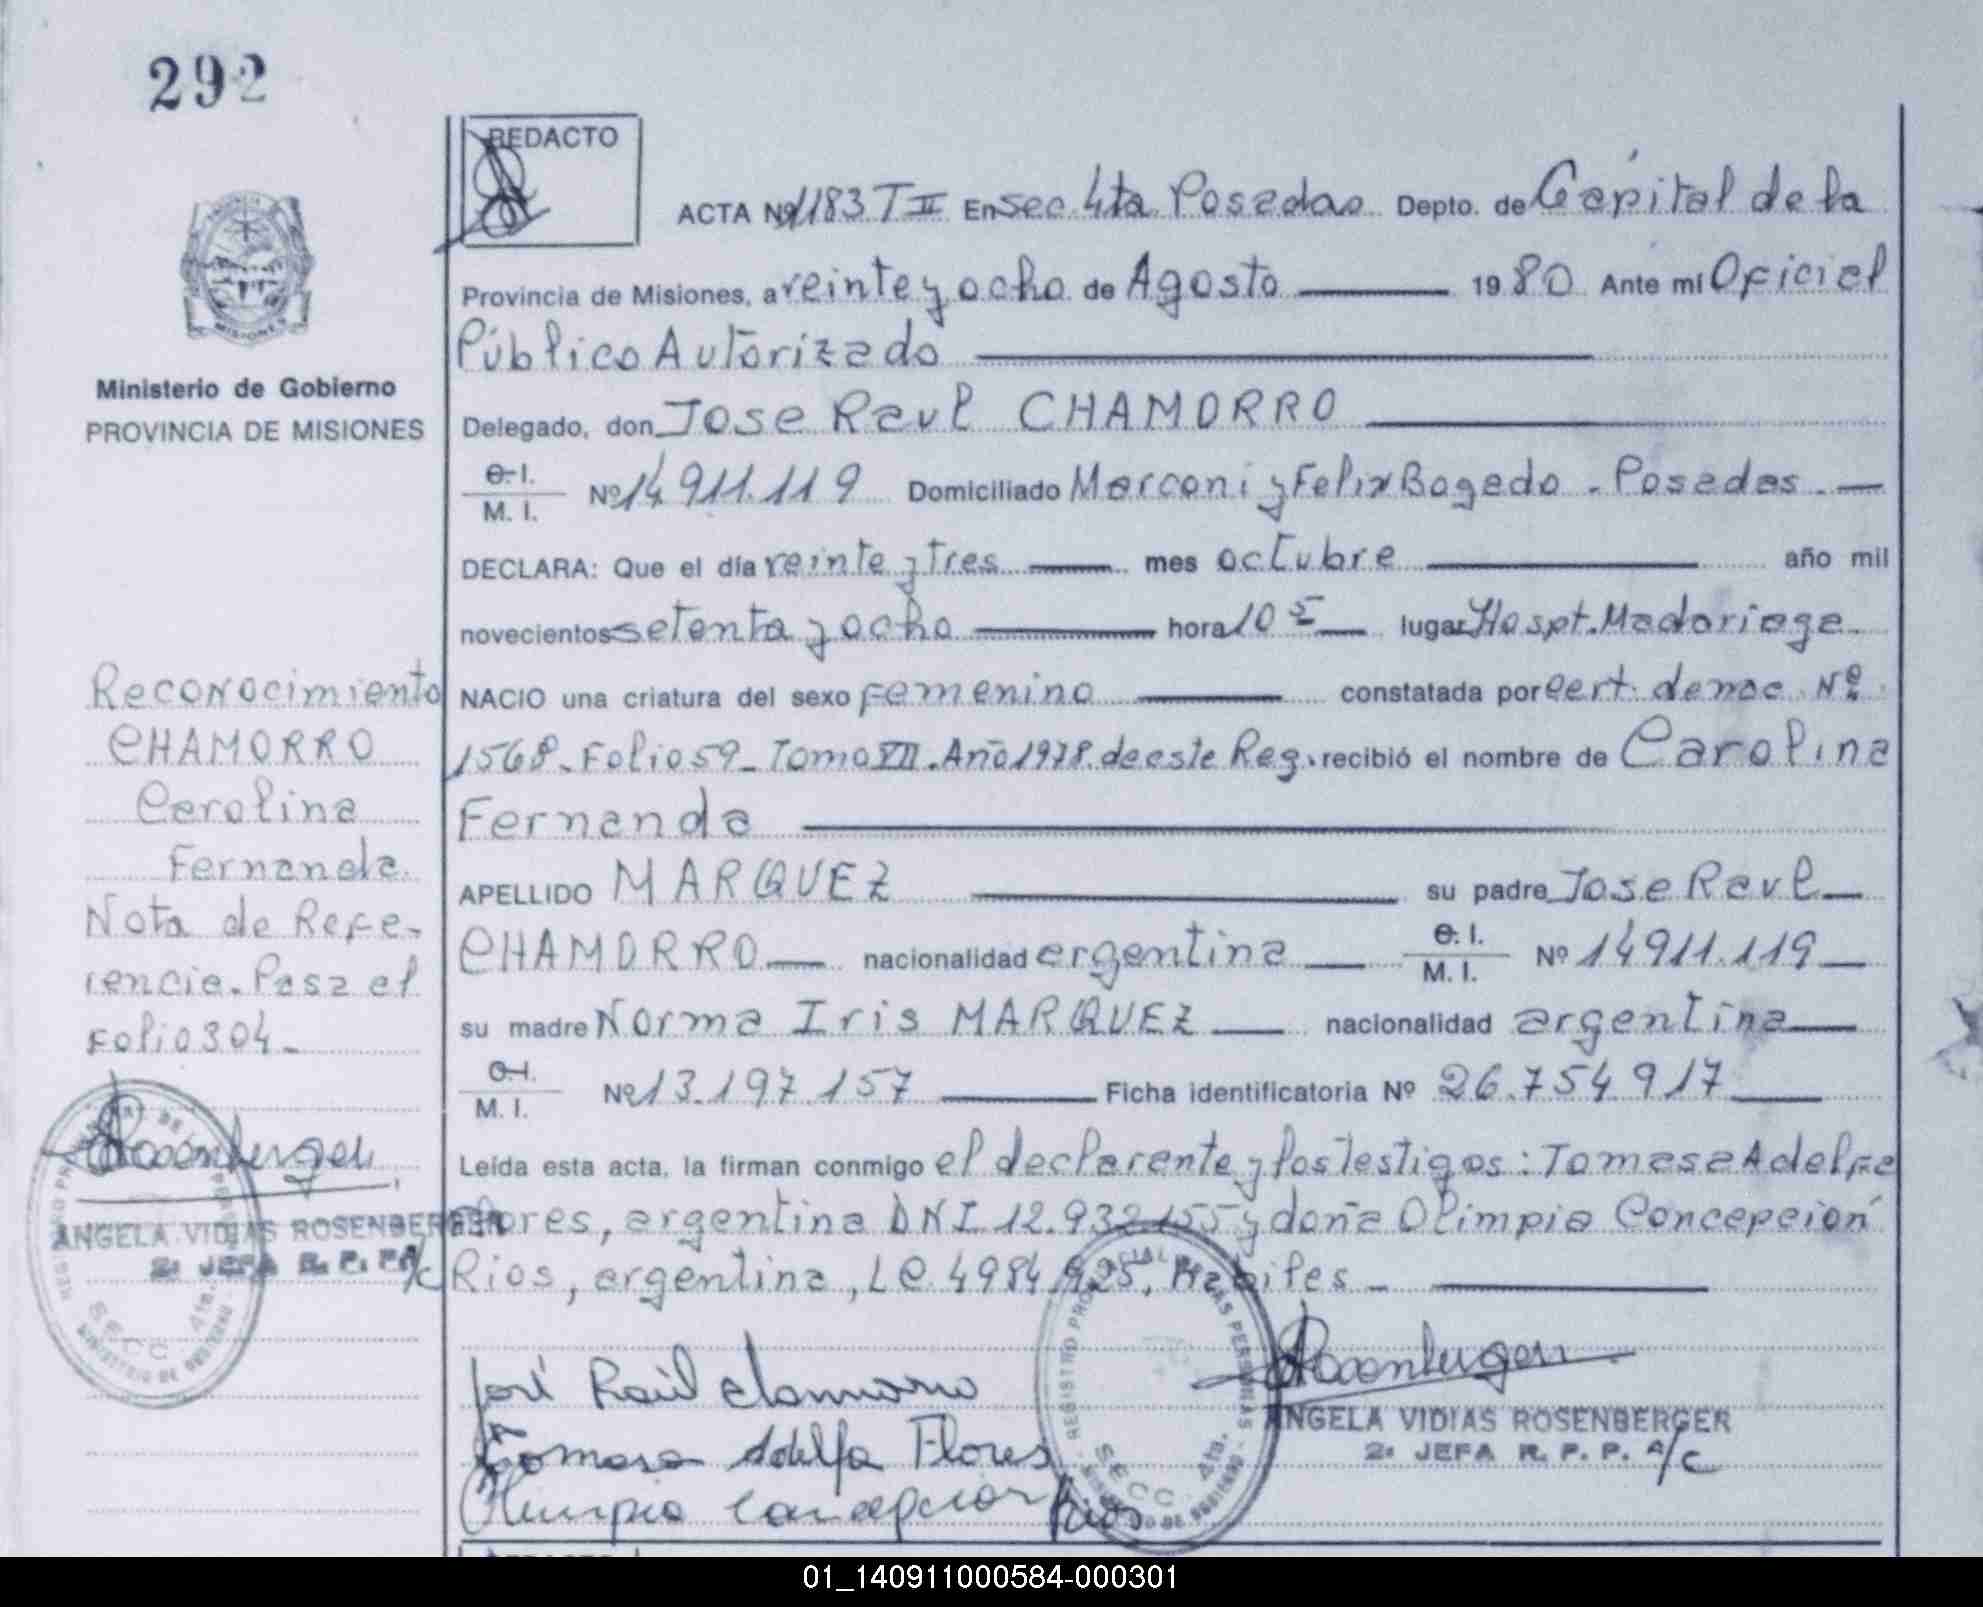 292
REDACTO
ACTA Nº 1183 T II En Sec. 4ta. Posadas Depto. de Capital de la
Provincia de Misiones, a veinte y ocho de Agosto 1980 Ante mí Oficial
Público Autorizado
Delegado, don Jose Raul CHAMORRO
C. I.
M. I. Nº 14911.119 Domiciliado Marconi y Felix Bogado - Posadas. -
DECLARA: Que el día veinte y tres mes octubre año mil
novecientos setenta y ocho hora 10 5 lugar Hospt. Madariaga.
NACIO una criatura del sexo femenino constatada por cert. de nac. Nº
1568. Folio 59 - Tomo VII. Año 1978. de este Reg. recibió el nombre de Carolina
Fernanda
APELLIDO MARQUEZ su padre Jose Raul
CHAMORRO nacionalidad argentina C. I.
M. I. Nº 14911.119
su madre Norma Iris MARQUEZ nacionalidad argentina
C. I.
M. I. Nº 13.197.157 Ficha identificatoria Nº 26.754917
Leída esta acta, la firman conmigo el declarante y los Testigos: Tomasa Adelfa
Flores, argentina DNI 12.932.155 y doña Olimpia Concepción
Rios, argentina, LC. 4984.925, Habiles -
José Raúl Chamorro
Tomasa Adelfa Flores
Olimpia Concepcion Rios
Rosenberger
ANGELA VIDIAS ROSENBERGER
2ª JEFA R. P. P. A/C
REGISTRO PROVINCIAL DE LAS PERSONAS
SECC. 4ta.
MINISTERIO DE GOBIERNO
MISIONES
Ministerio de Gobierno
PROVINCIA DE MISIONES
Reconocimiento
CHAMORRO
Carolina
Fernanda.
Nota de Refe-
rencia. Pasa al
Folio 304 -
Rosenberger
ANGELA VIDIAS ROSENBERGER
2ª JEFA R. P. P. A/C
SECC. 4ta.
MINISTERIO DE GOBIERNO
01_140911000584-000301